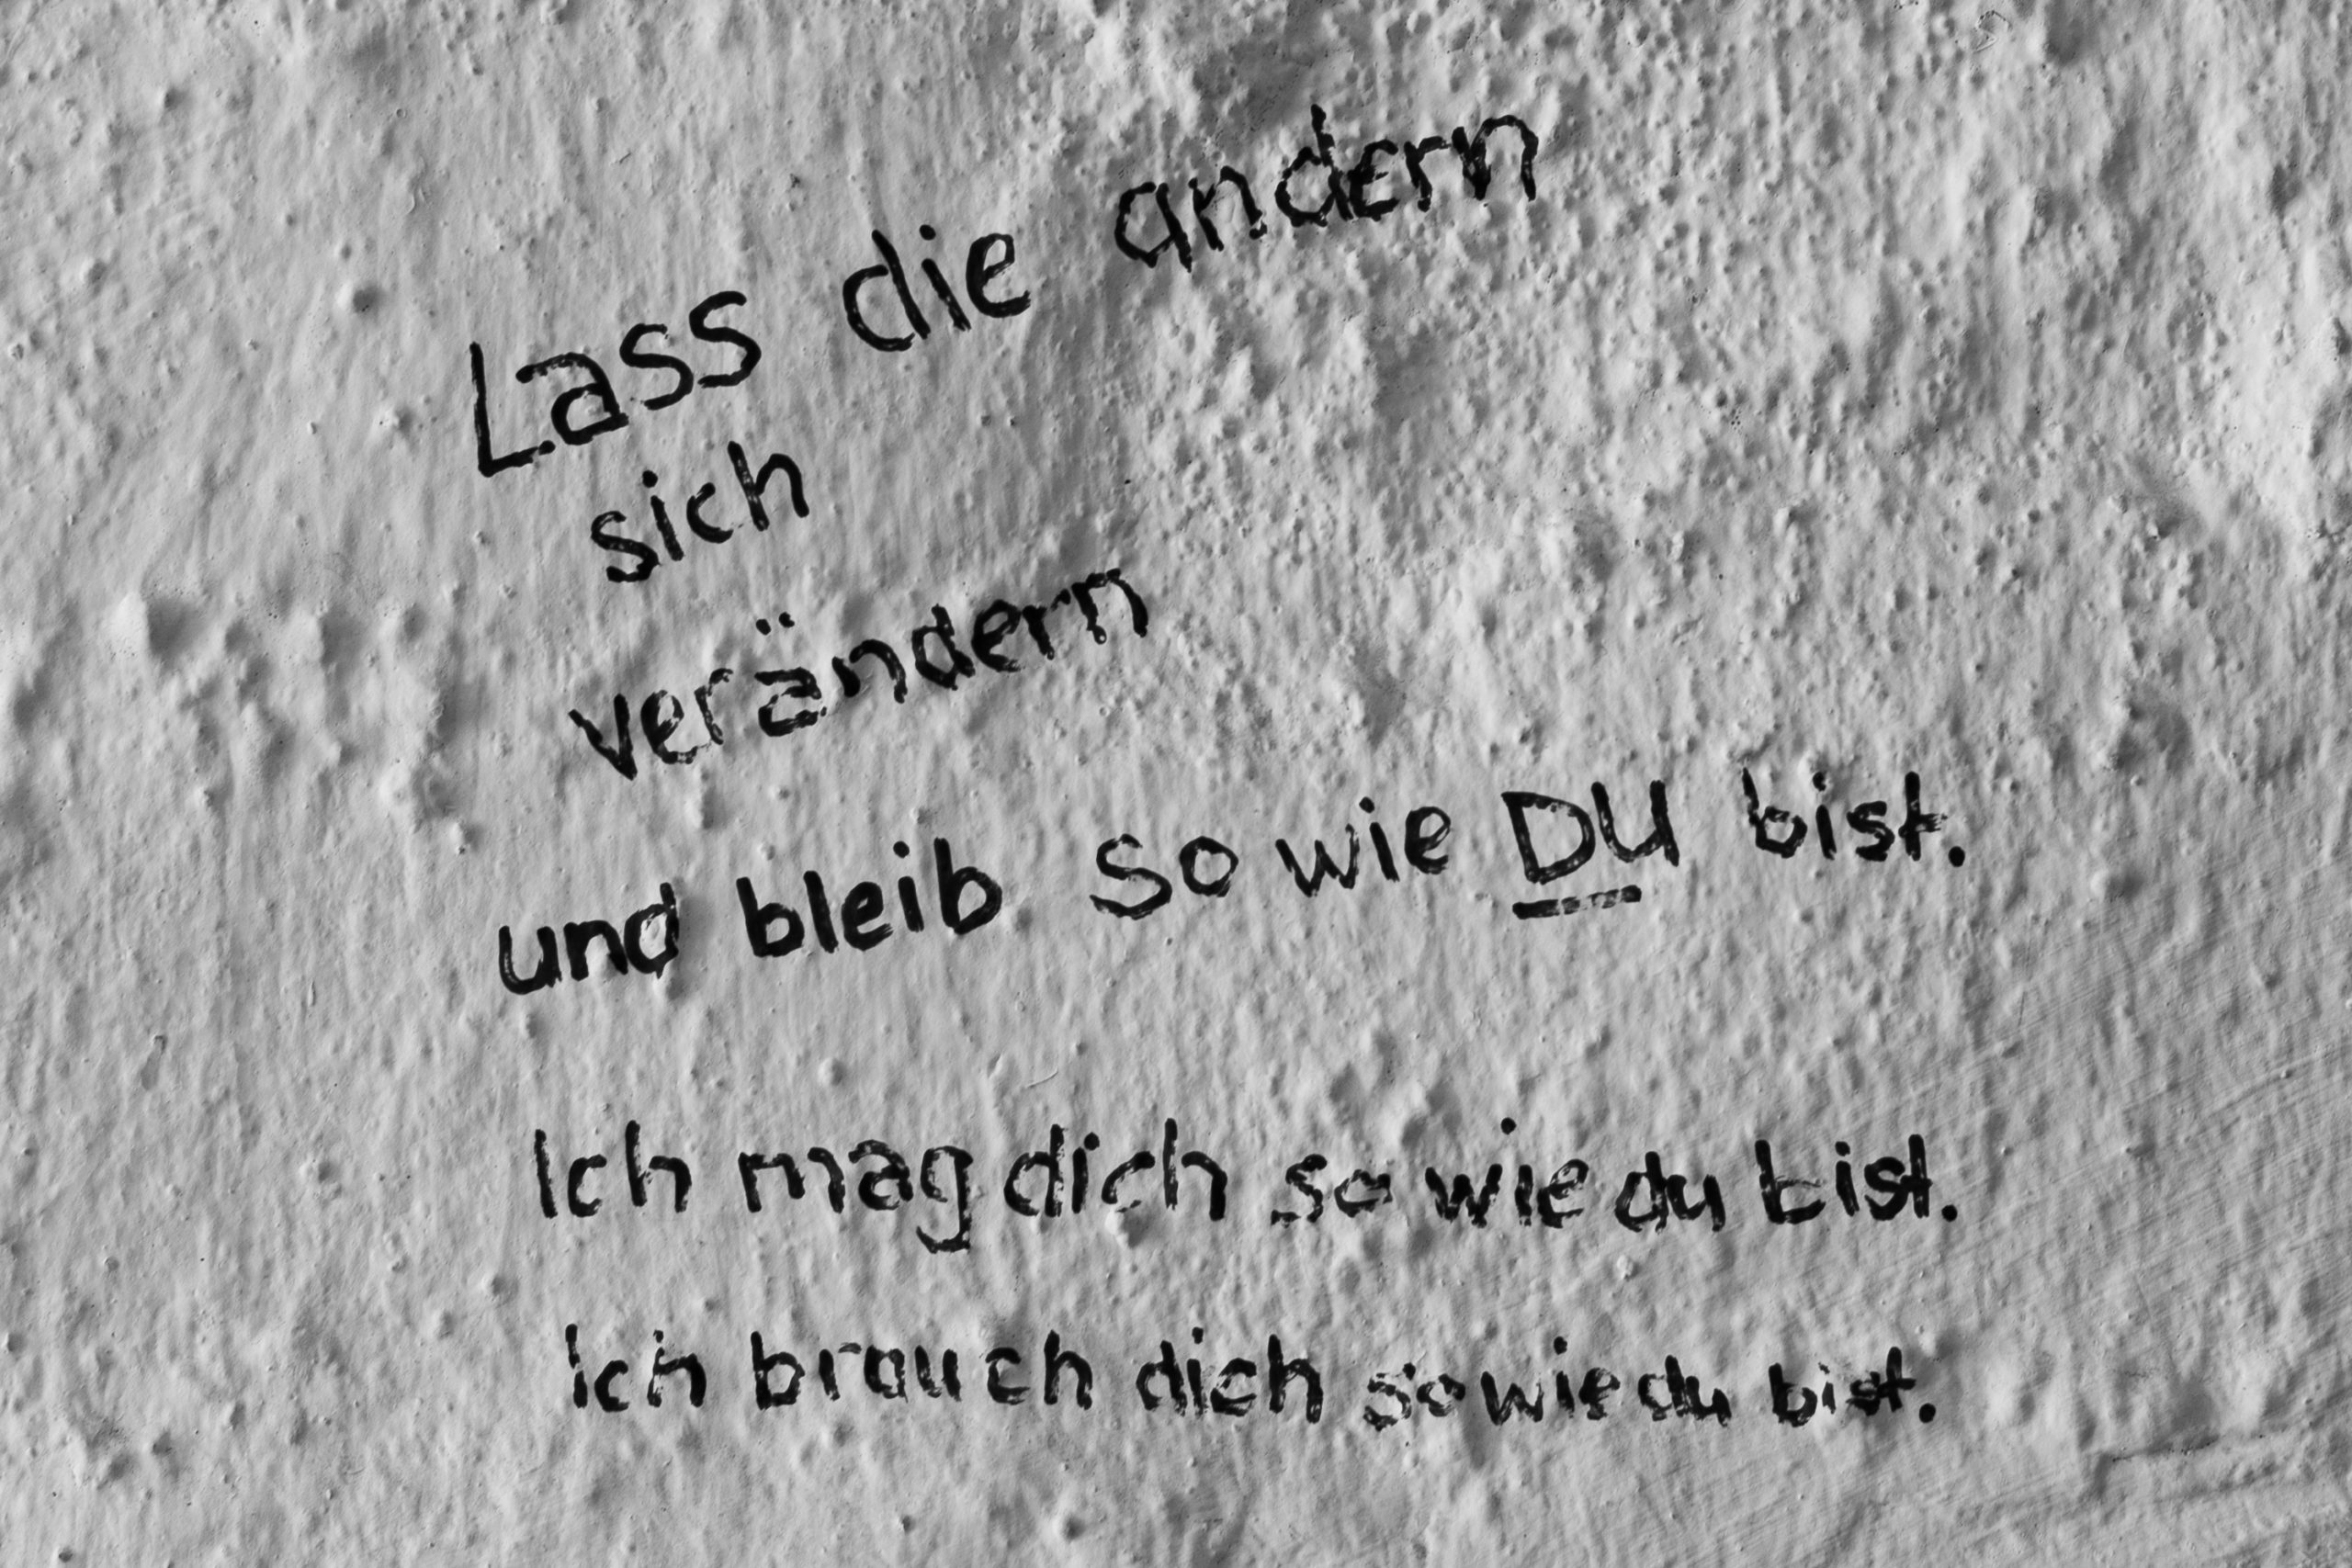 Lass die andern
sich
verändern
und bleib so wie DU bist.
Ich mag dich so wie du bist.
Ich brauch dich so wie du bist.